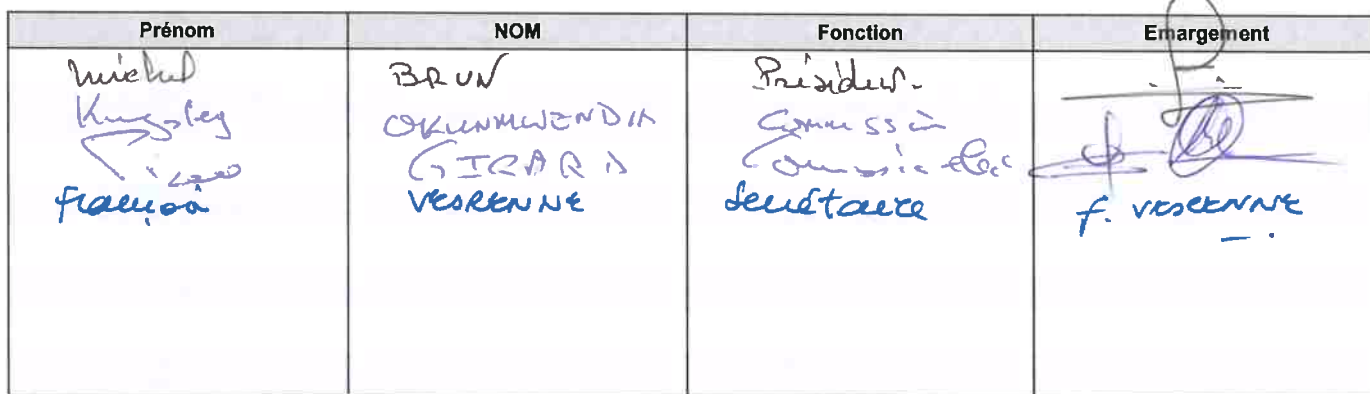 Prénom NOM Fonction Emargement
Michel BRUN Président.
Kingsley OKUNMWENDIA Commission
GIRARD Commission elec
François VESRENNE Secrétaire f. VESRENNE